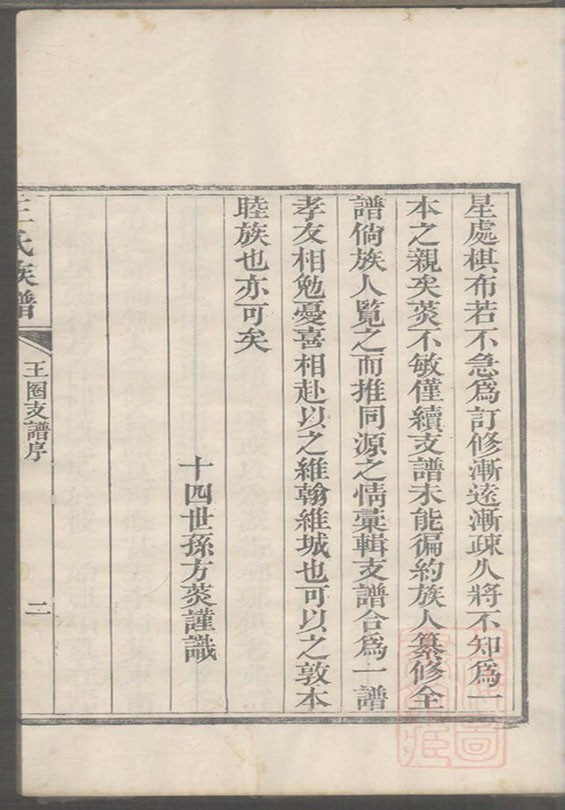 星處棋布若不急爲訂修漸遠漸疎久將不知爲一
本之親矣菼不敏僅續支譜未能徧約族人纂修全
譜倘族人覽之而推同源之情彙輯支譜合爲一譜
孝友相勉憂喜相赴以之維翰維城也可以之敦本
睦族也亦可矣
十四世孫方菼謹識
王氏族譜
王圈支譜序
二